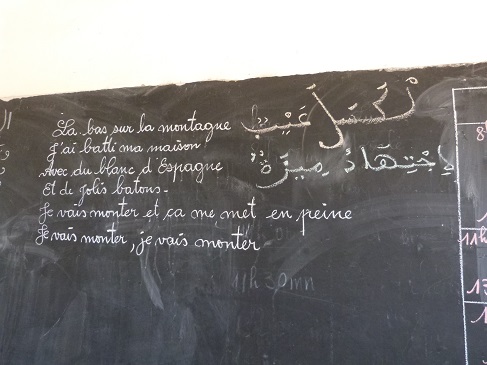 La bas sur la montagne
J'ai batti ma maison
Avec du blanc d'Espagne
Et de jolis batons-
Je vais monter et ça me met en peine
Je vais monter, je vais monter
عَيْبٌ
إِجْتِهَادْ مِيزَةٌ
11h 30mn
8h
11h